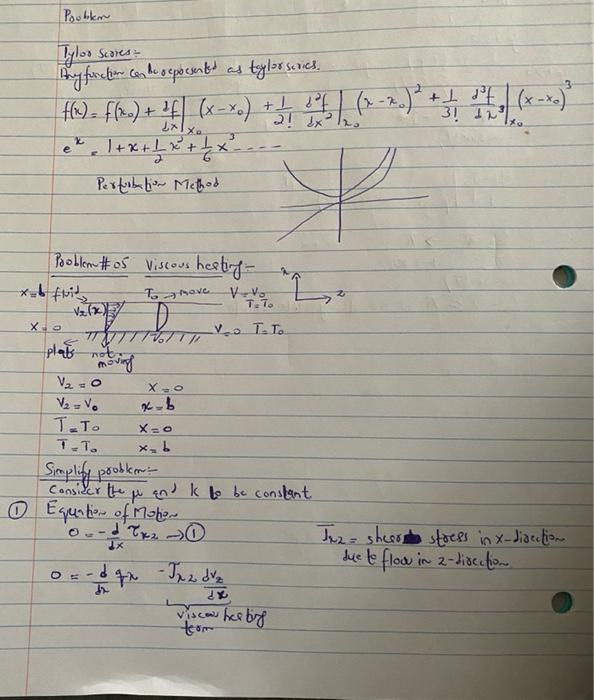 Problem
Tylor series:-
Any function can be represented as taylor series.
f(x) = f(x₀) + df/dx|x₀ (x-x₀) + 1/2! d²f/dx²|x₀ (x-x₀)² + 1/3! d³f/dx³|x₀ (x-x₀)³
eˣ = 1+x+1/2 x²+1/6 x³ ----
Perturbation Method
Problem # 05 Viscous heating:-
x=b fluid T₀ → move V=V₀ x
T=T₀ z
Vz(x)
x=0 V₀ V=0 T=T₀
plate not moving
Vz = 0 x=0
Vz = V₀ x=b
T=T₀ x=0
T=T₀ x=b
Simplify problem:-
Consider the μ and k to be constant
① Equation of Motion
0 = -d/dx τxz → ①
τxz = shear stress in x-direction
due to flow in z-direction.
0 = -d/dx qx - τxz dvz/dx
viscous heating
term